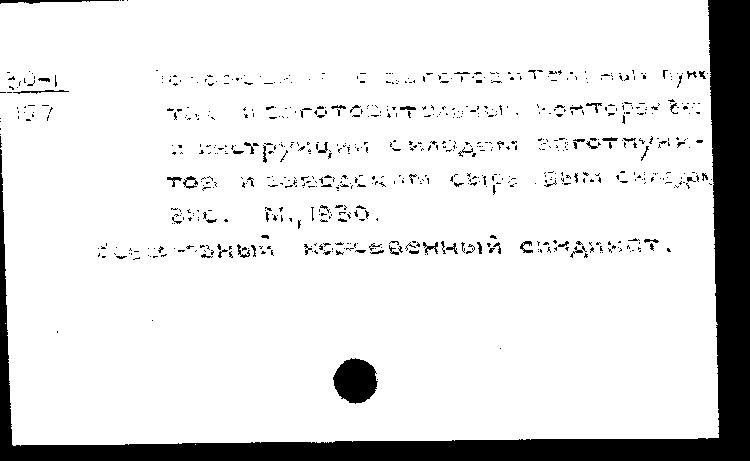 30-1
157
Положения о заготовительных пунк
тах и заготовительных конторах ВКС
и инструкции складам заготпунк-
тов и заводским сырьевым складам
ВКС. М., 1930.
Всесоюзный кожевенный синдикат.